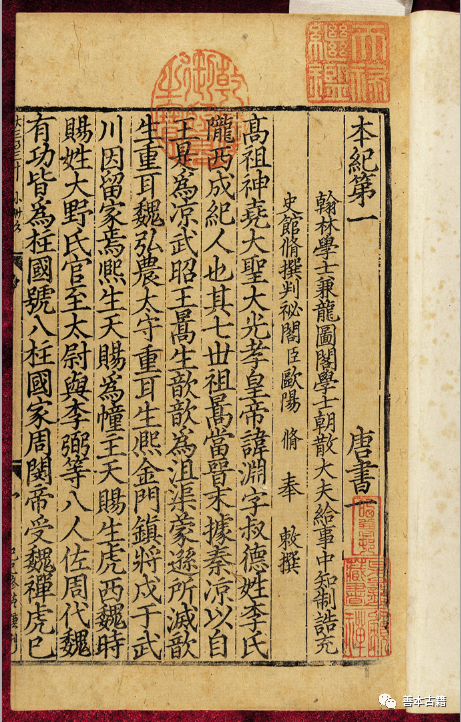 本紀第一 唐書一
翰林學士兼龍圖閣學士朝散大夫給事中知制誥充
史館脩撰判祕閣臣歐陽 脩 奉 敕撰
高祖神堯大聖大光孝皇帝諱淵字叔德姓李氏
隴西成紀人也其七世祖暠當晉末據秦涼以自
王是為涼武昭王暠生歆歆為沮渠蒙遜所滅歆
生重耳魏弘農太守重耳生熙金門鎮將戍于武
川因留家焉熙生天賜為幢主天賜生虎西魏時
賜姓大野氏官至太尉與李弼等八人佐周代魏
有功皆為柱國號八柱國家周閔帝受魏禪虎已
天祿繼鑑
乾隆御覽之寶
善本古籍